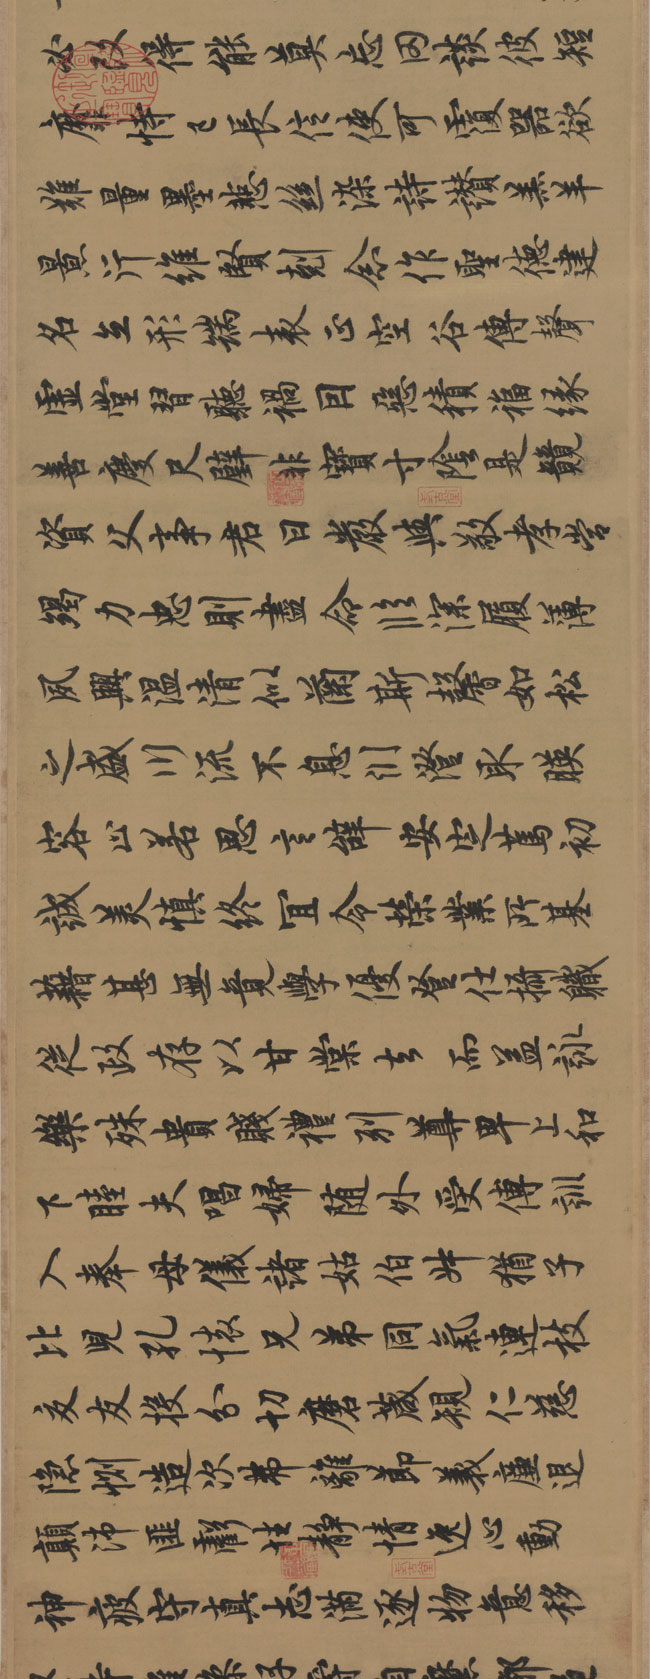 必改得能莫忘罔談彼短
靡恃己長信使可覆器欲
難量墨悲絲染詩讚羔羊
景行維賢剋念作聖德建
名立形端表正空谷傳聲
虛堂習聽禍因惡積福緣
善慶尺璧非寶寸陰是競
資父事君曰嚴與敬孝當
竭力忠則盡命臨深履薄
夙興溫清似蘭斯馨如松
之盛川流不息淵澄取暎
容止若思言辭安定篤初
誠美慎終宜令榮業所基
藉甚無竟學優登仕攝職
從政存以甘棠去而益詠
樂殊貴賤禮別尊卑上和
下睦夫唱婦随外受傅訓
入奉母儀諸姑伯叔猶子
比兒孔懷兄弟同氣連枝
交友投分切磨箴規仁慈
隱惻造次弗離節義廉退
顛沛匪虧性靜情逸心動
神疲守真志滿逐物意移